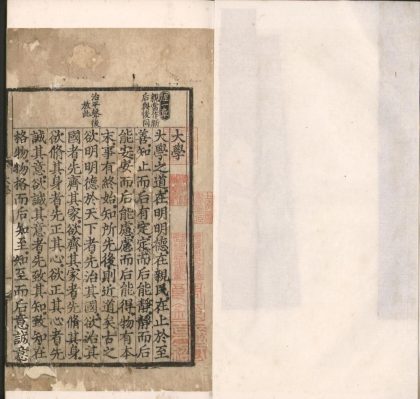 親當作新
后與後同
治平聲後
放此
大學
大學之道在明明德在親民在止於至
善知止而后有定定而后能靜靜而后
能安安而后能慮慮而后能得物有本
末事有終始知所先後則近道矣古之
欲明明德於天下者先治其國欲治其
國者先齊其家欲齊其家者先脩其身
欲脩其身者先正其心欲正其心者先
誠其意欲誠其意者先致其知致知在
格物物格而后知至知至而后意誠意